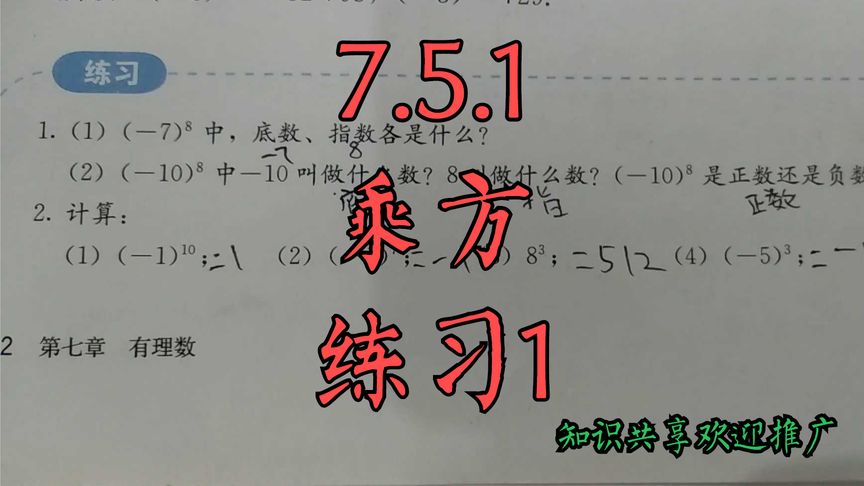 练习
7.5.1
1. (1) (-7)⁸ 中，底数、指数各是什么？
-7 8
(2) (-10)⁸ 中-10 叫做什 数？8 叫做什么数？(-10)⁸ 是正数还是负数
底 指 正数
乘方
2. 计算：
(1) (-1)¹⁰；=1 (2) ( 8³；=512 (4) (-5)³；=-
练习1
2 第七章 有理数
知识共享欢迎推广